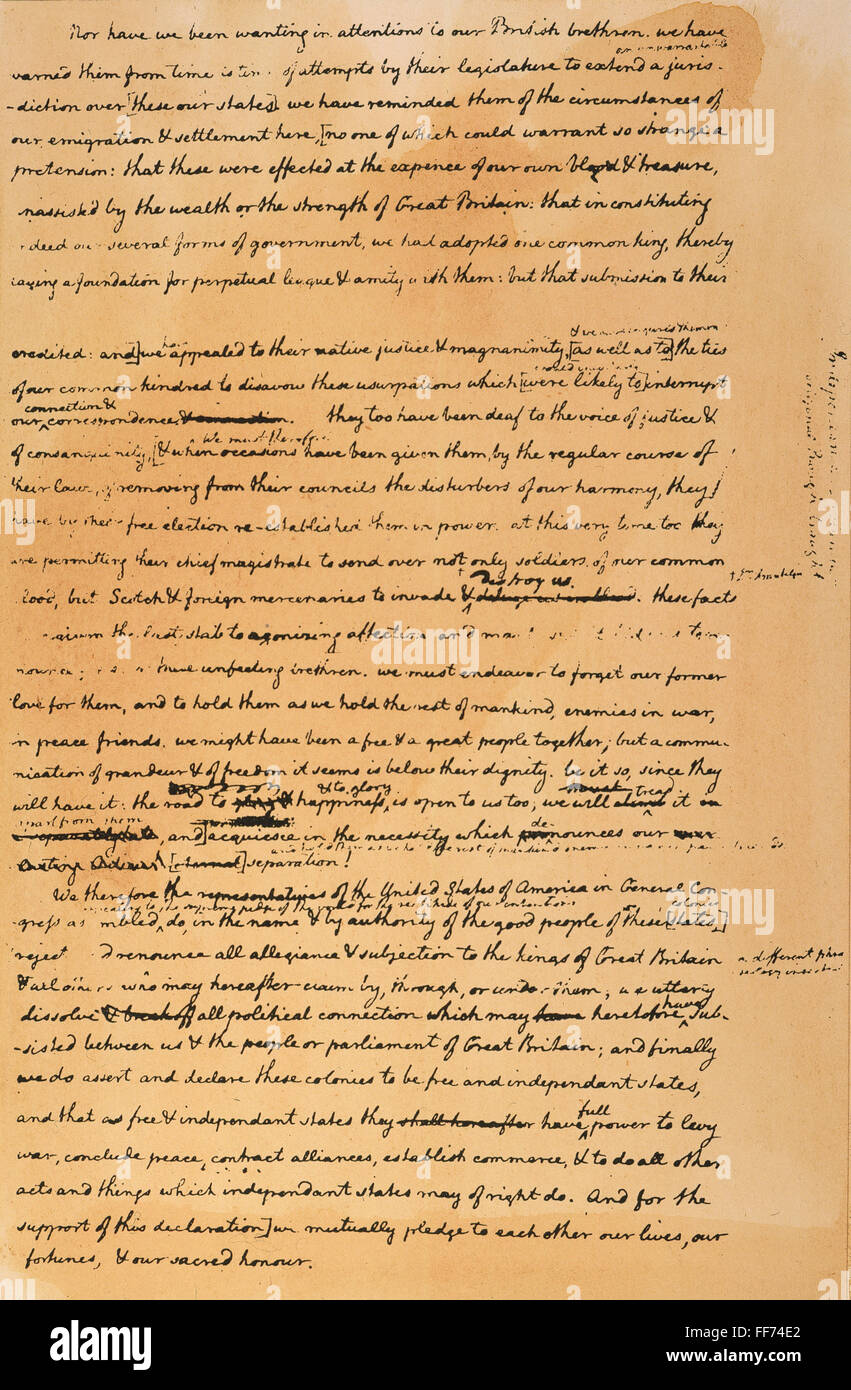 Nor have we been wanting in attentions to our British brethren. we have
an unwarrantable
warned them from time to time of attempts by their legislature to extend a juris-
-diction over [these our states] we have reminded them of the circumstances of
our emigration & settlement here, [no one of which could warrant so strange a
pretension: that these were effected at the expence of our own blood & treasure,
unassisted by the wealth or the strength of Great Britain: that in constituting
indeed our several forms of government, we had adopted one common king, thereby
laying a foundation for perpetual league & amity with them: but that submission to their
credited: and] we have appealed to their native justice & magnanimity, [as well as to] the ties
of our common kindred to disavow these usurpations which [were likely to] interrupt
connection &
our correspondence & connection. they too have been deaf to the voice of justice &
We must therefore
of consanguinity, [& when occasions have been given them, by the regular course of
their laws, of removing from their councils the disturbers of our harmony, they
have by their free election re-established them in power. at this very time too they
are permitting their chief magistrate to send over not only soldiers of our common
destroy us.
blood, but Scotch & foreign mercenaries to invade & deluge us in blood. these facts
have given the last stab to agonizing affection and
these unfeeling brethren. we must endeavor to forget our former
love for them, and to hold them as we hold the rest of mankind, enemies in war,
in peace friends. we might have been a free & a great people together; but a commu-
nication of grandeur & of freedom it seems is below their dignity. be it so, since they
& to glory
must tread
will have it: the road to & happiness, is open to us too; we will it
apart from them
separately, and acquiesce in the necessity which denounces our
[eternal] separation!
We therefore the representatives of the United States of America in General Con-
appealing to the supreme judge of the world for the rectitude of our intentions
colonies
gress assembled, do, in the name & by authority of the good people of these [states,]
reject and renounce all allegiance & subjection to the kings of Great Britain
& all others who may hereafter claim by, through, or under them; we utterly
have
dissolve & break off all political connection which may have heretofore sub-
-sisted between us & the people or parliament of Great Britain; and finally
we do assert and declare these colonies to be free and independant states,
full
and that as free & independant states they shall hereafter have power to levy
war, conclude peace, contract alliances, establish commerce, & to do all other
acts and things which independant states may of right do. And for the
support of this declaration] we mutually pledge to each other our lives, our
fortunes, & our sacred honour.
† Dr. Franklin
a different phra
alamy
alamy stock photo
FF74E2
www.alamy.com